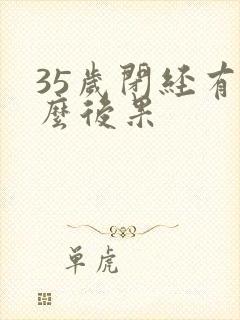 35歲閉經有
麼後果
單虎